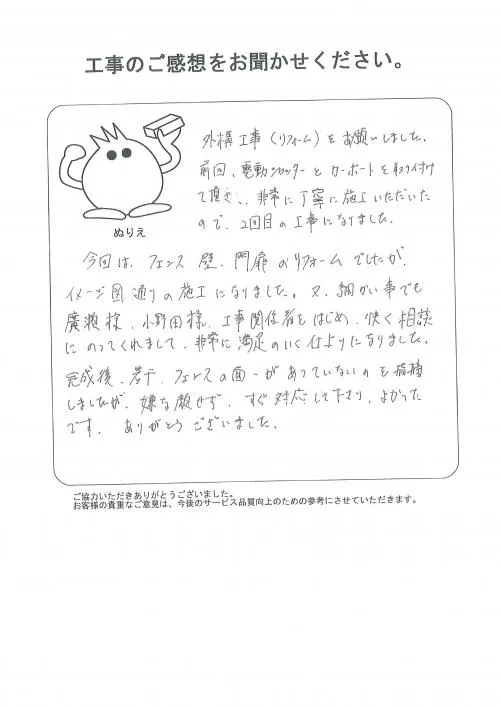 工事のご感想をお聞かせください。
外構工事（リフォーム）をお願いしました。
前回、電動シャッターとカーポートを取り付け
て頂き、非常に丁寧に施工いただいた
ので、2回目の工事になりました。
ぬりえ
今回は、フェンス 壁、門扉のリフォームでしたが、
イメージ図通りの施工になりました。又、細かい事でも
廣瀬様、小野田様、工事関係者をはじめ、快く相談
にのってくれまして、非常に満足のいく仕上りになりました。
完成後、若干、フェンスの面一があっていないのを指摘
しましたが、嫌な顔せず、すぐ対応して下さり、よかった
です。ありがとうございました。
ご協力いただきありがとうございました。
お客様の貴重なご意見は、今後のサービス品質向上のための参考にさせていただきます。